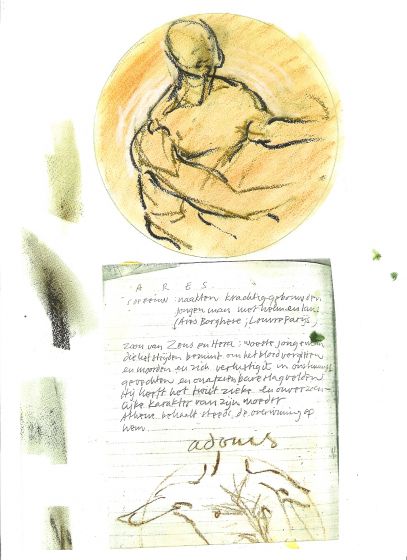 A R E S .
5e eeuw : naakte, krachtig gebouwde
jongeman met helm en lans
(Ares Borghese ; Louvre Parijs)
zoon van Zeus en Hera : woeste jongeman
die het strijden bemint om het bloedvergieten
en moorden en zich verlustigt in
gevechten en onafzienbare slagvelden
Hij heeft het twist zieke en onverzoen-
lijke karakter van zijn moeder
Athene behaalt steeds de overwinning op
hem.
adonis